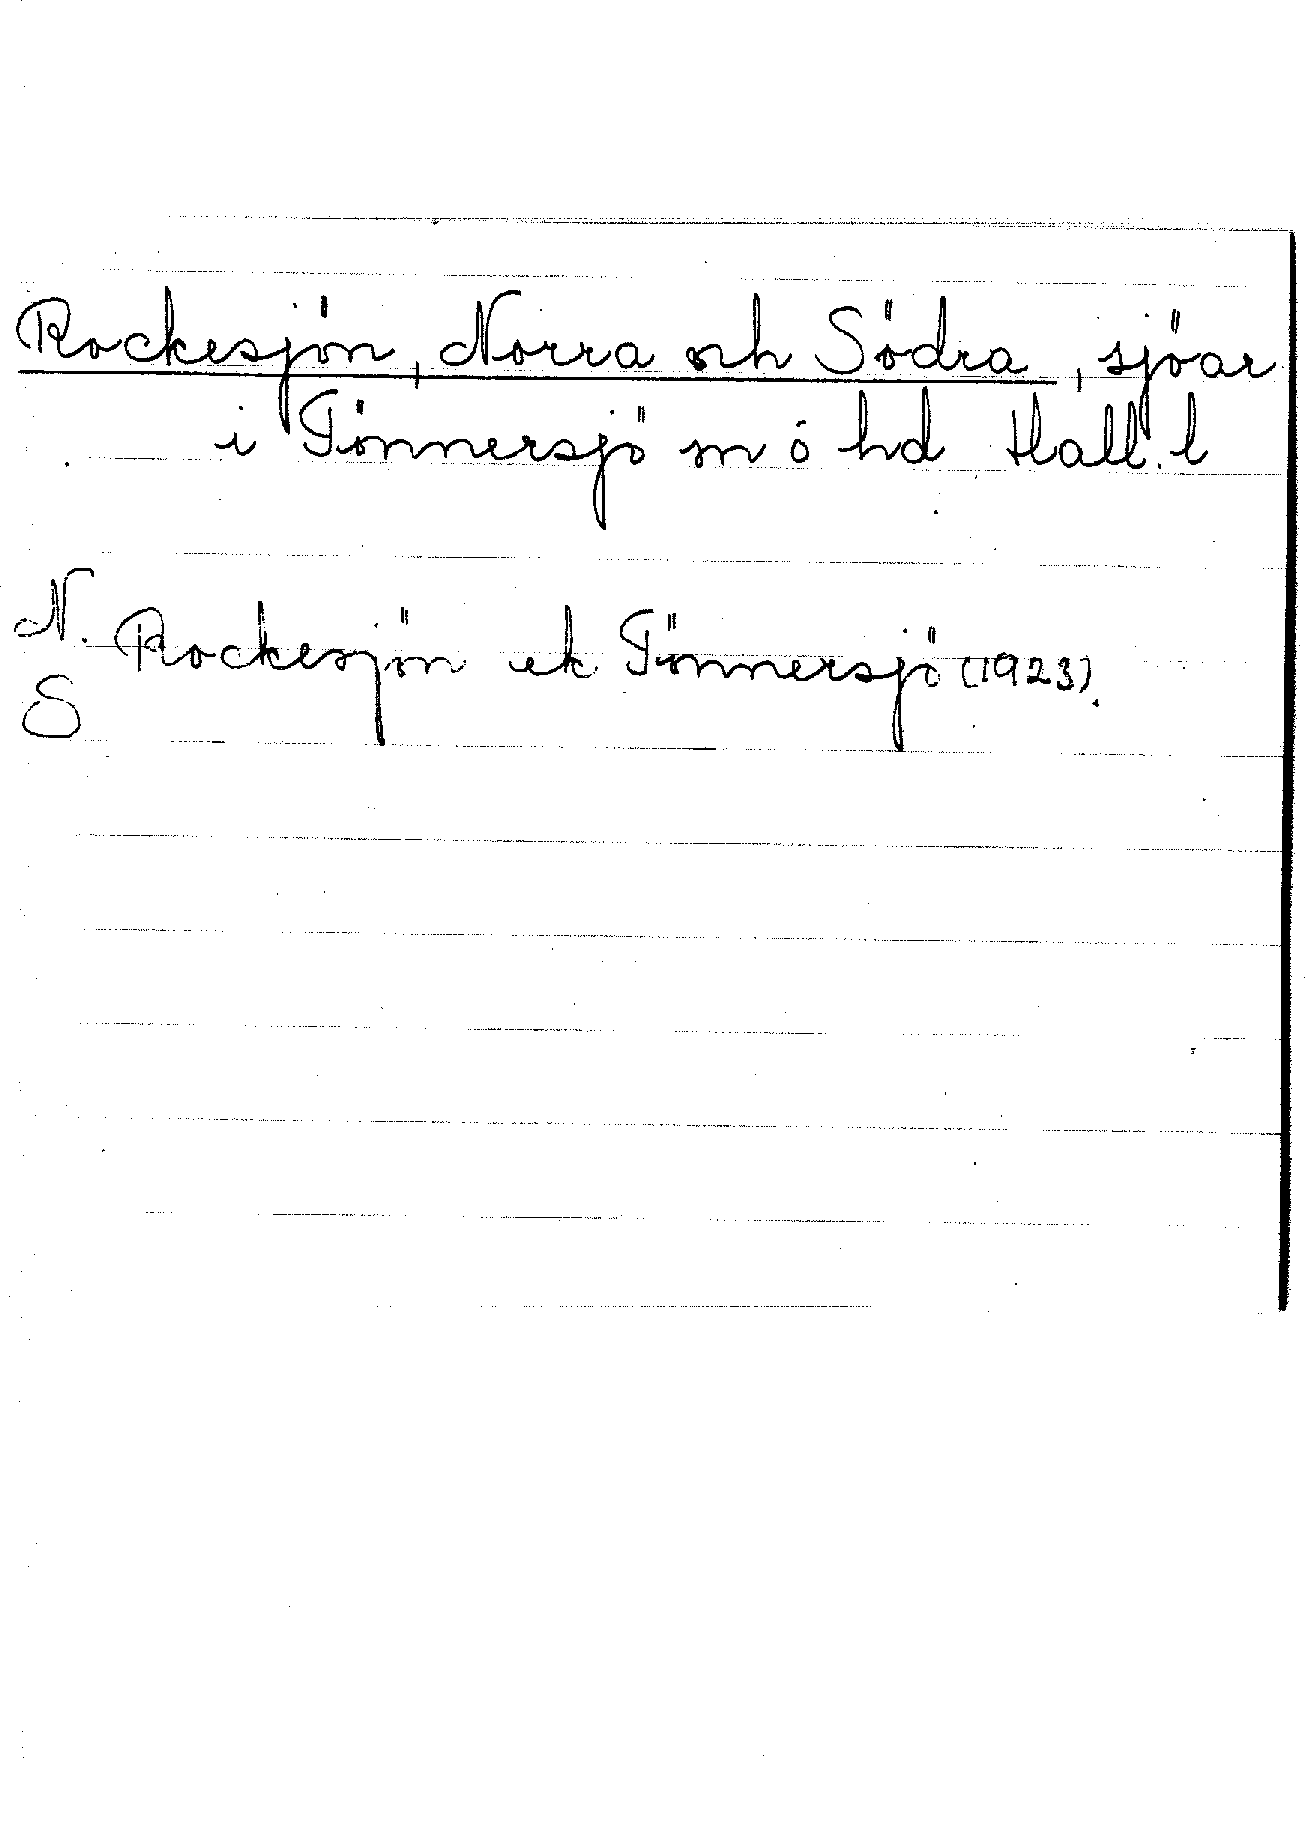 Rockesjön, Norra och Södra, sjöar
i Tönnersjö sn o hd Hall. l
N.
Rockesjön ek Tönnersjö (1923).
S